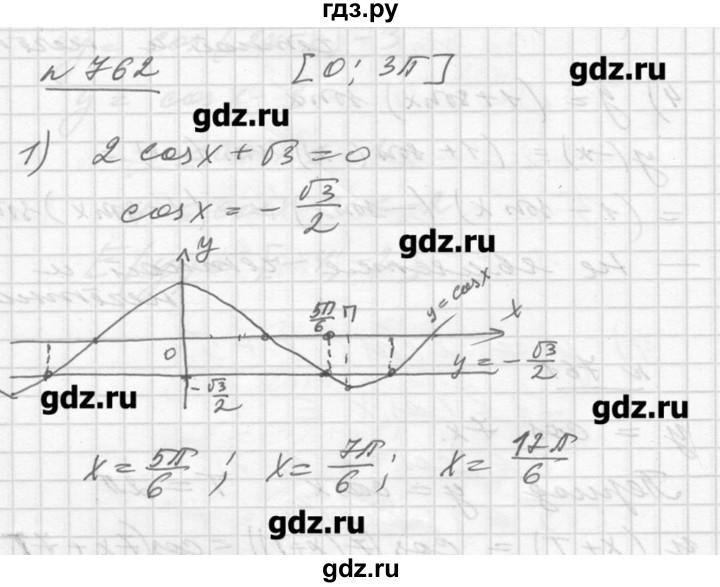 гдз.ру
n 762 [0; 3π]
gdz.ru
gdz.ru
1) 2 cosx + √3 = 0
cosx = - √3/2
gdz.ru
y
y = cosx
5π/6 π x
0
y = - √3/2
- √3/2
gdz.ru
gdz.ru
x = 5π/6 ; x = 7π/6 ; x = 17π/6
gdz.ru
gdz.ru